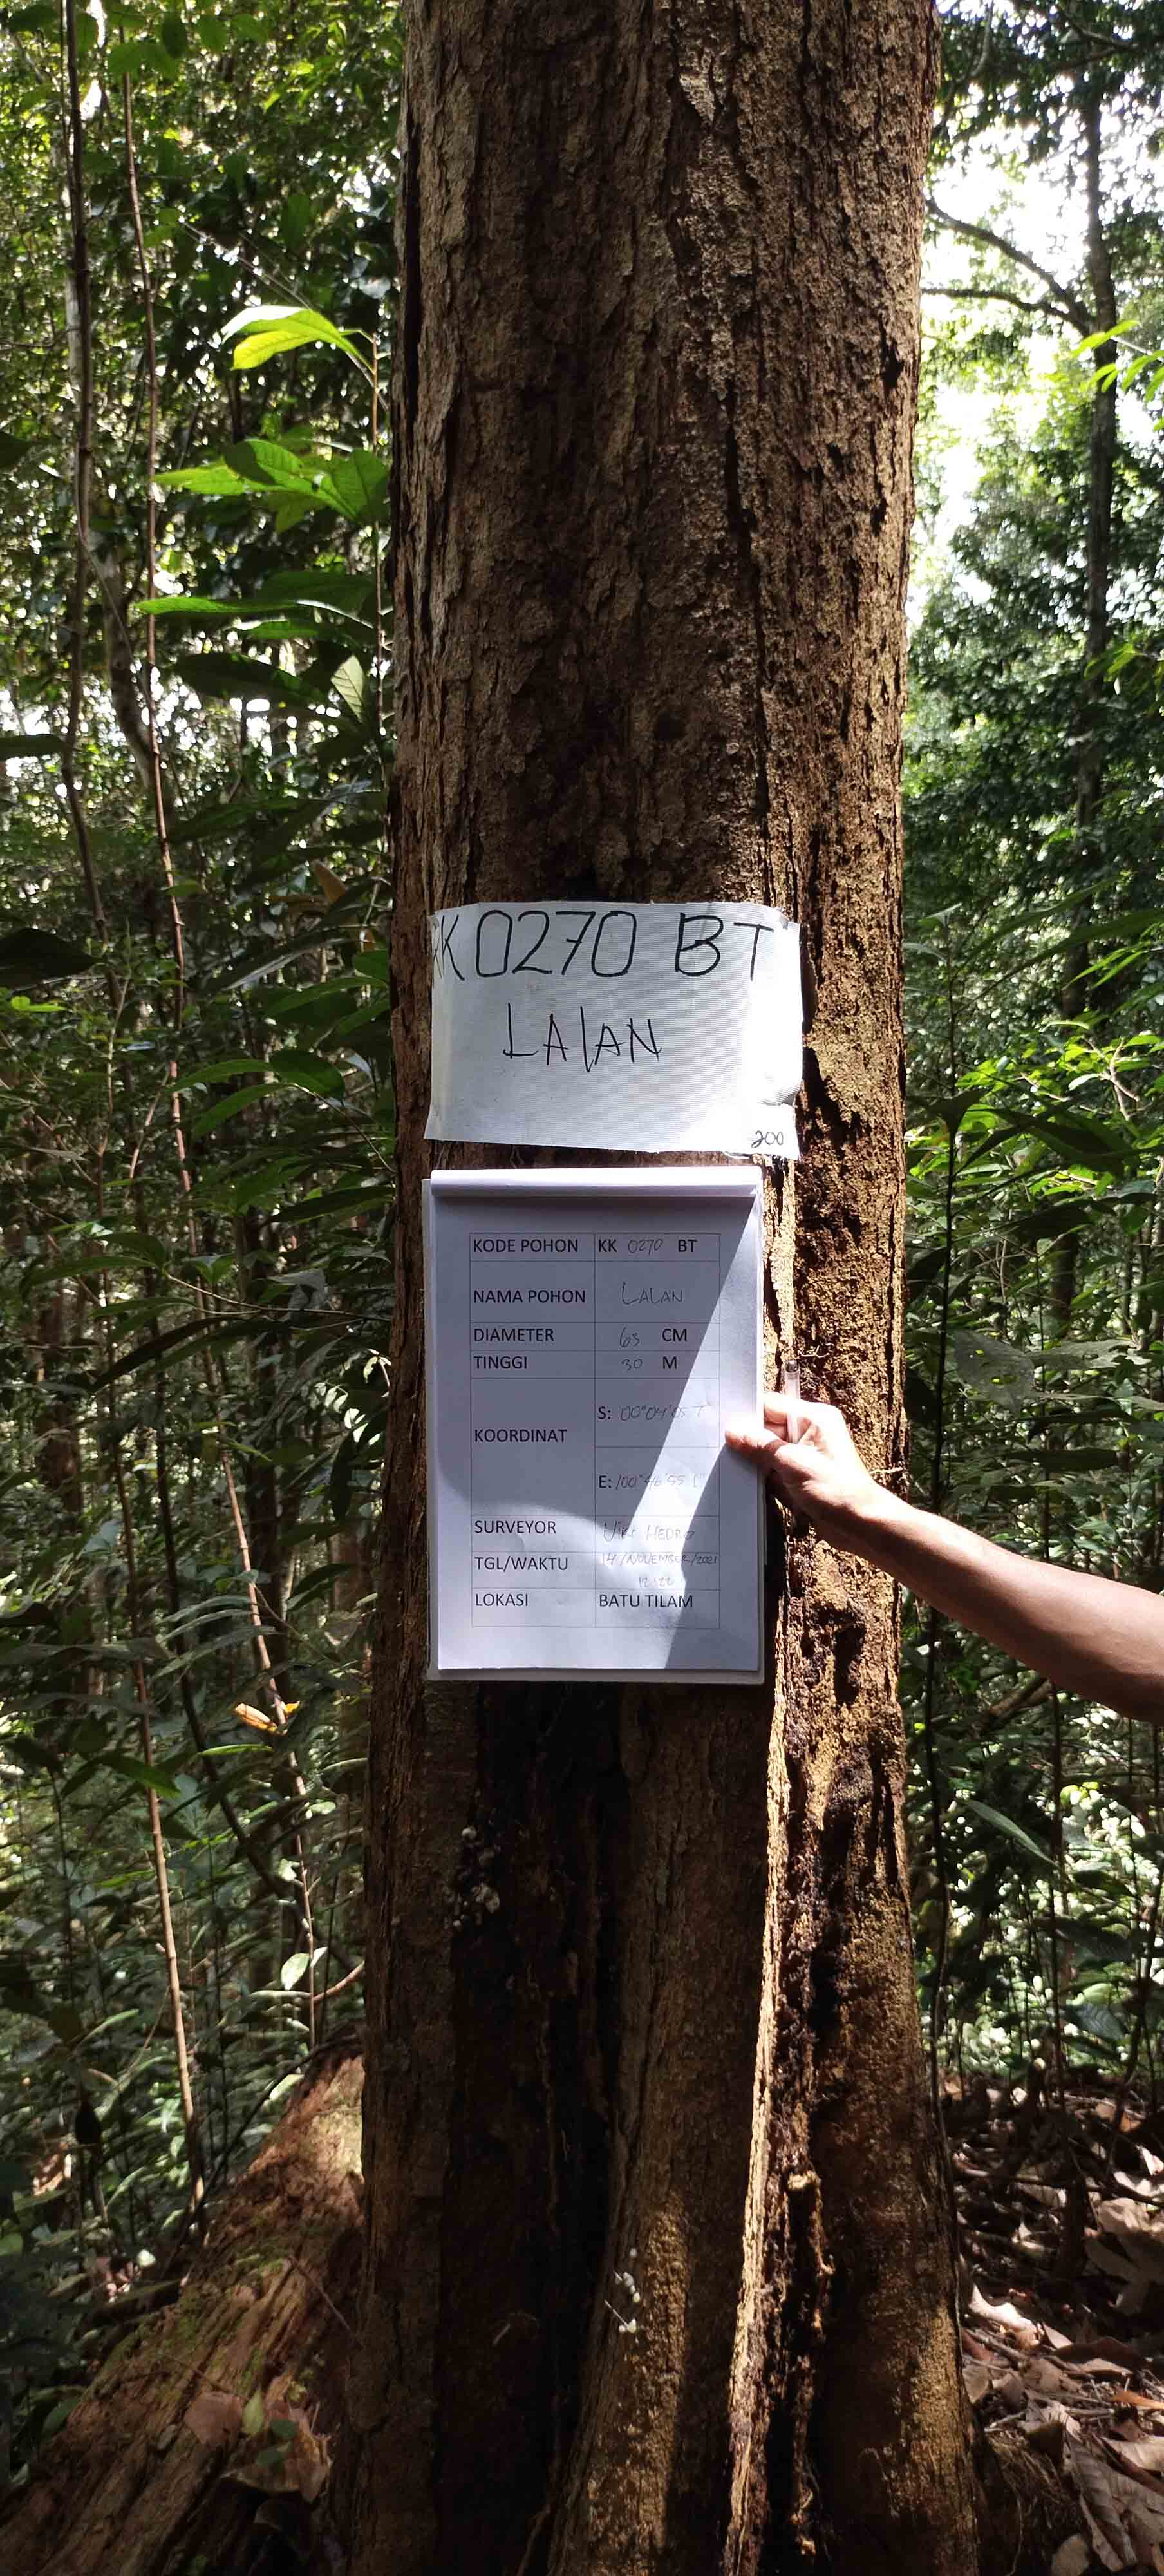 KK 0270 BT
LALAN
200
KODE POHON KK 0270 BT
NAMA POHON LALAN
DIAMETER 63 CM
TINGGI 30 M
KOORDINAT
S: 00°04'05 7"
E: 100°46'55
SURVEYOR HEDRO
TGL/WAKTU 14/NOVEMBER/2021
12:22
LOKASI BATU TILAM